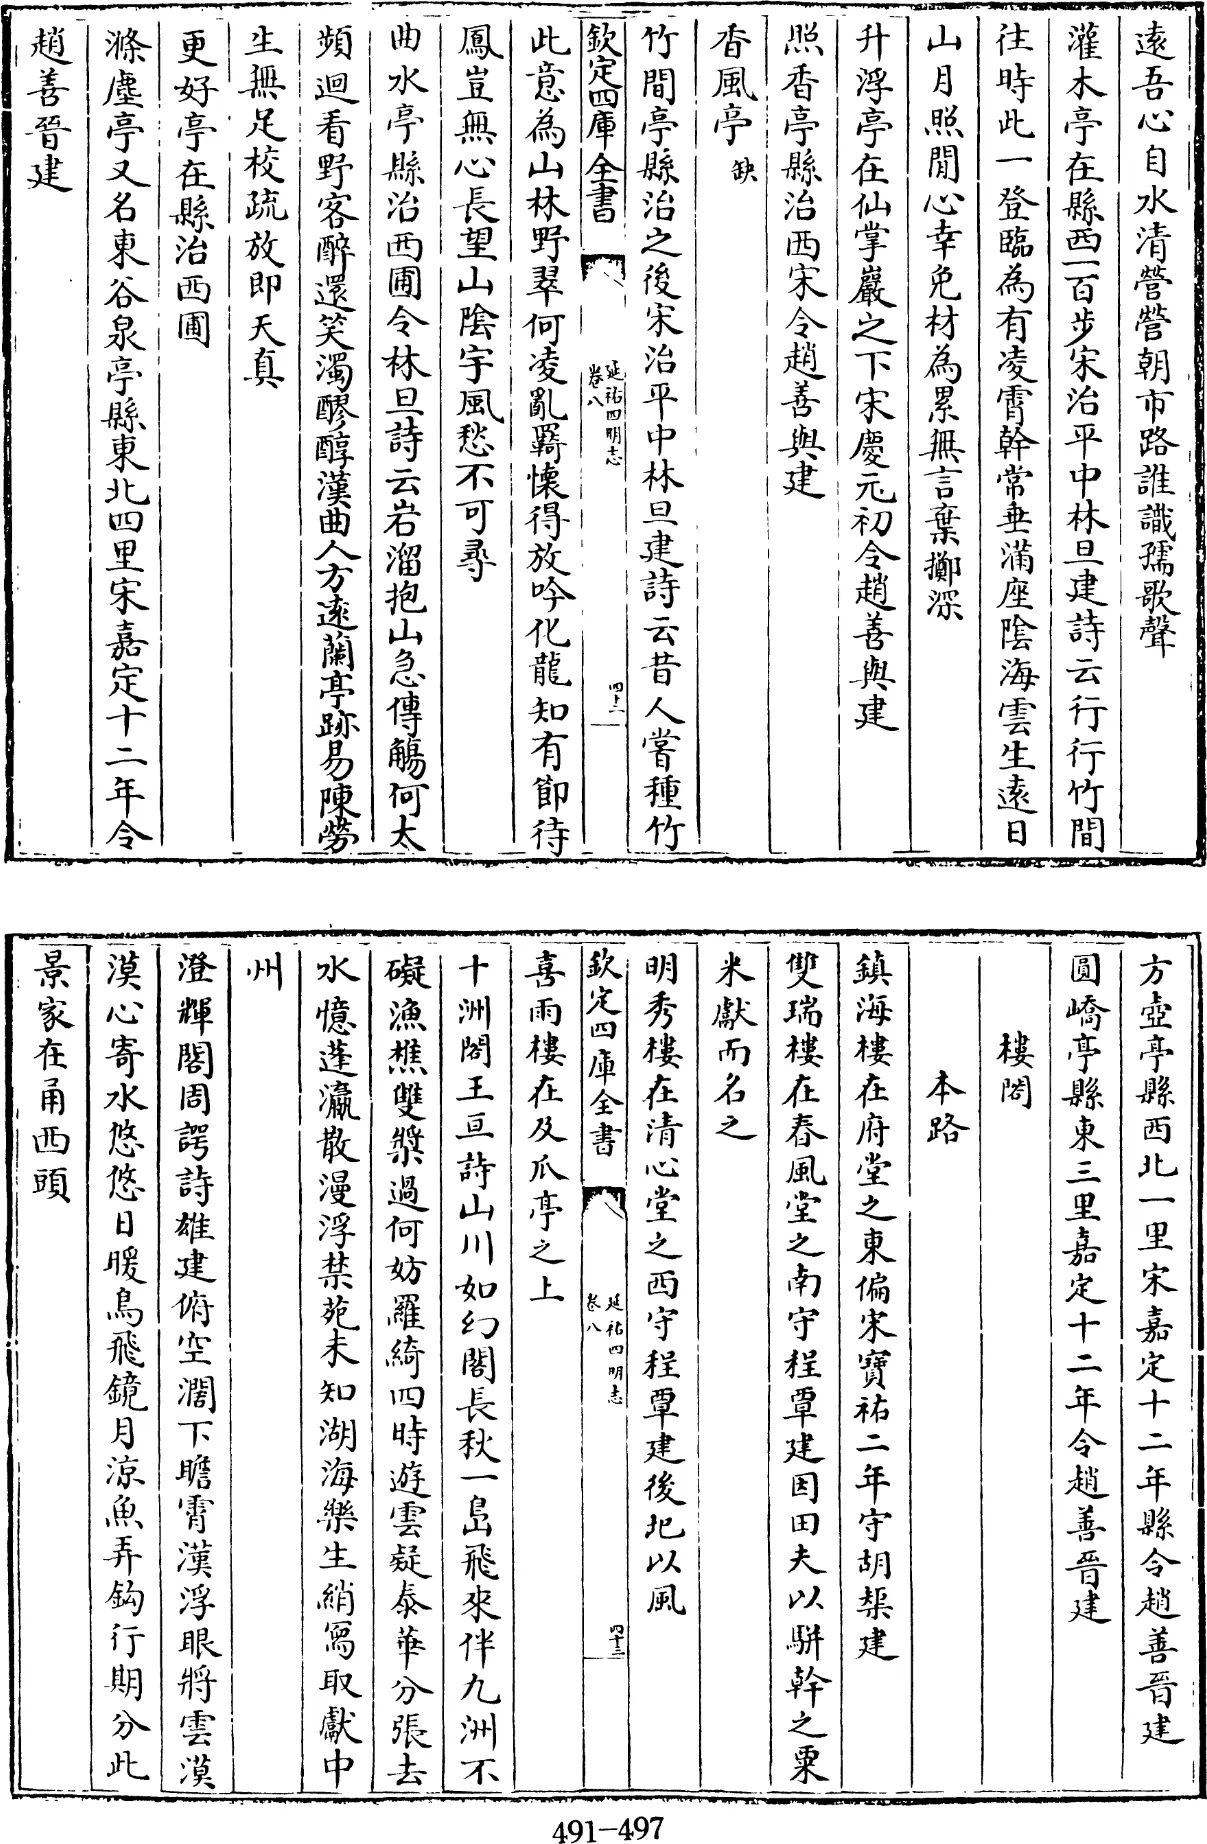 遠吾心自水清營營朝市路誰識孺歌聲
灌木亭在縣西一百步宋治平中林旦建詩云行行竹間
往時此一登臨為有凌霄幹常垂滿座陰海雲生遠日
山月照閒心幸免材為累無言棄擲深
升浮亭在仙掌巖之下宋慶元初令趙善與建
照香亭縣治西宋令趙善與建
杳風亭缺
竹間亭縣治之後宋治平中林旦建詩云昔人嘗種竹
欽定四庫全書
延祐四明志
卷八
四十二
此意為山林野翠何凌亂羇懐得放吟化龍知有節待
鳳豈無心長望山陰宇風愁不可尋
曲水亭縣治西圃令林旦詩云岩溜抱山急傳觴何太
頻迴看野客醉還笑濁醪醇漢曲人方遠蘭亭跡易陳勞
生無足校疏放即天真
更好亭在縣治西圃
滌塵亭又名東谷泉亭縣東北四里宋嘉定十二年令
趙善晉建
方壺亭縣西北一里宋嘉定十二年縣令趙善晉建
圓嶠亭縣東三里嘉定十二年令趙善晉建
樓閣
本路
鎮海樓在府堂之東偏宋寶祐二年守胡榘建
雙瑞樓在春風堂之南守程覃建因田夫以駢幹之粟
米獻而名之
明秀樓在清心堂之西守程覃建後圮以風
欽定四庫全書
延祐四明志
卷八
四十三
喜雨樓在及瓜亭之上
十洲閣王亘詩山川如幻閣長秋一島飛來伴九洲不
礙漁樵雙槳過何妨羅綺四時遊雲疑泰華分張去
水憶蓬瀛散漫浮禁苑未知湖海樂生綃寫取獻中
州
澄輝閣周諤詩雄建俯空濶下瞻霄漢浮眼將雲漠
漠心寄水悠悠日暖鳥飛鏡月涼魚弄鈎行期分此
景家在甬西頭
491-497